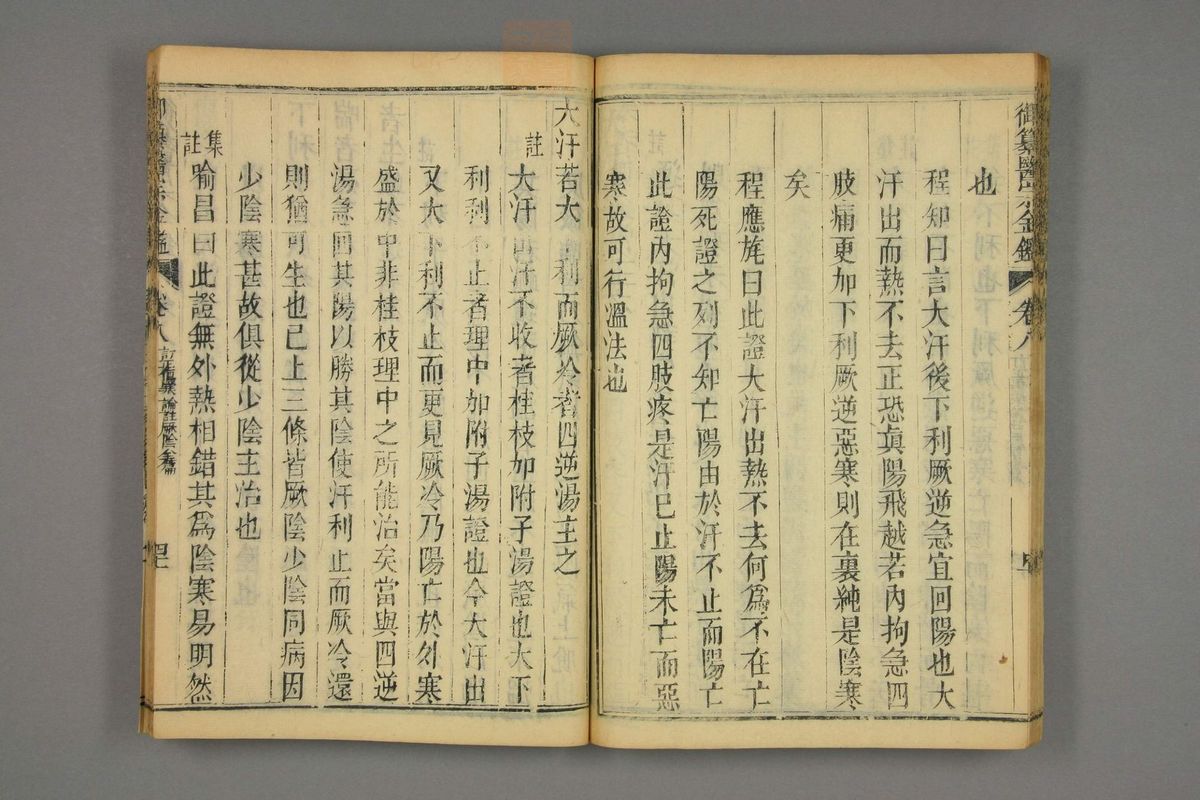 御纂醫宗金鑑 卷八
也
程知曰言大汗後下利厥逆急宜回陽也大
汗出而熱不去正恐眞陽飛越若內拘急四
肢痛更加下利厥逆惡寒則在裏純是陰寒
矣
程應旄曰此證大汗出熱不去何爲不在亡
陽死證之列不知亡陽由於汗不止而陽亡
此證內拘急四肢疼是汗已止陽未亡而惡
寒故可行溫法也
大汗若大下利而厥冷者四逆湯主之
註 大汗出汗不收者桂枝加附子湯證也大下
利利不止者理中加附子湯證也今大汗出
又大下利不止而更見厥冷乃陽亡於外寒
盛於中非桂枝理中之所能治矣當與四逆
湯急回其陽以勝其陰使汗利止而厥冷還
則猶可生也已上三條皆厥陰少陰同病因
少陰寒甚故俱從少陰主治也
集註 喻昌曰此證無外熱相錯其爲陰寒易明然
卷八